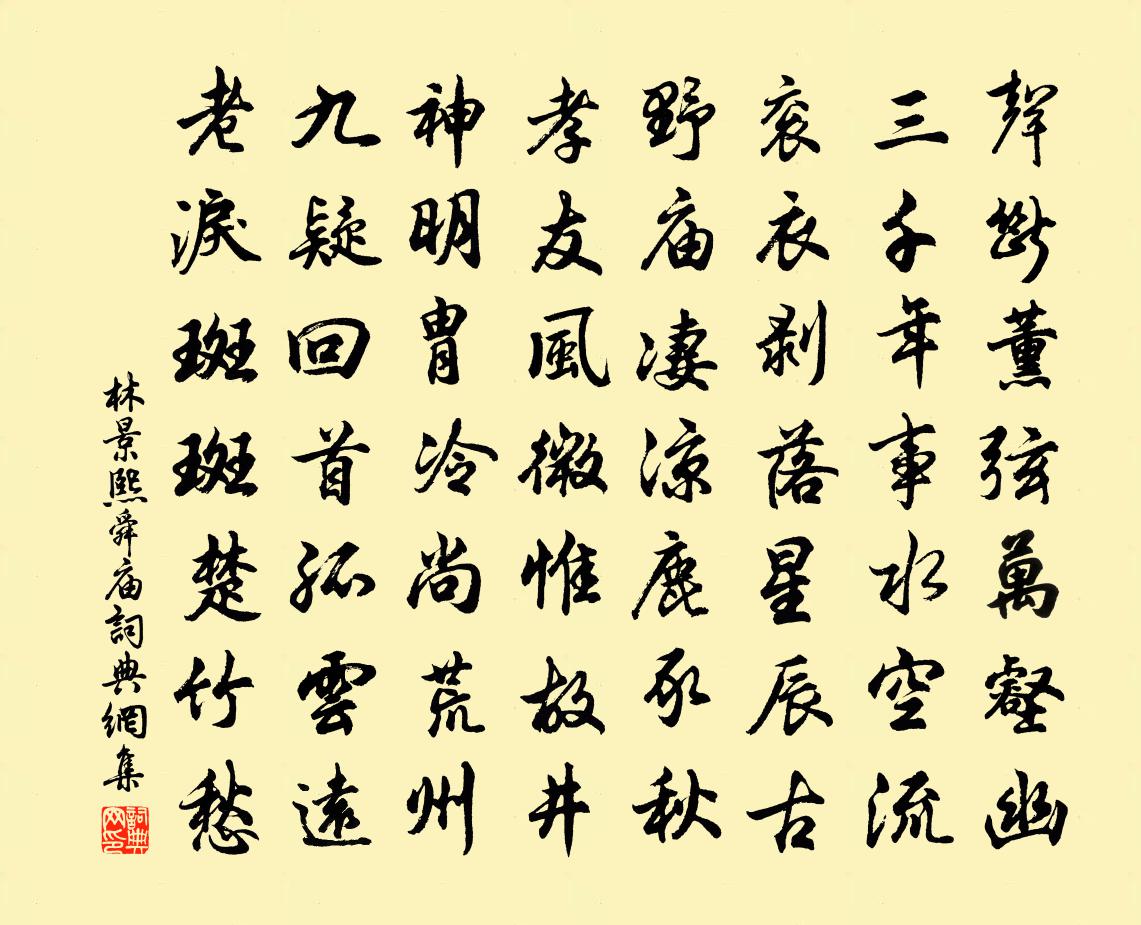 聲斷薰弦萬壑幽
三千年事水空流
衮衣剥落星辰古
野庙凄涼鹿豕秋
孝友風微惟故井
神明胄冷尚荒州
九疑回首孤雲遠
老淚斑斑楚竹愁
林景熙舜庙詞典網集
詞典网印